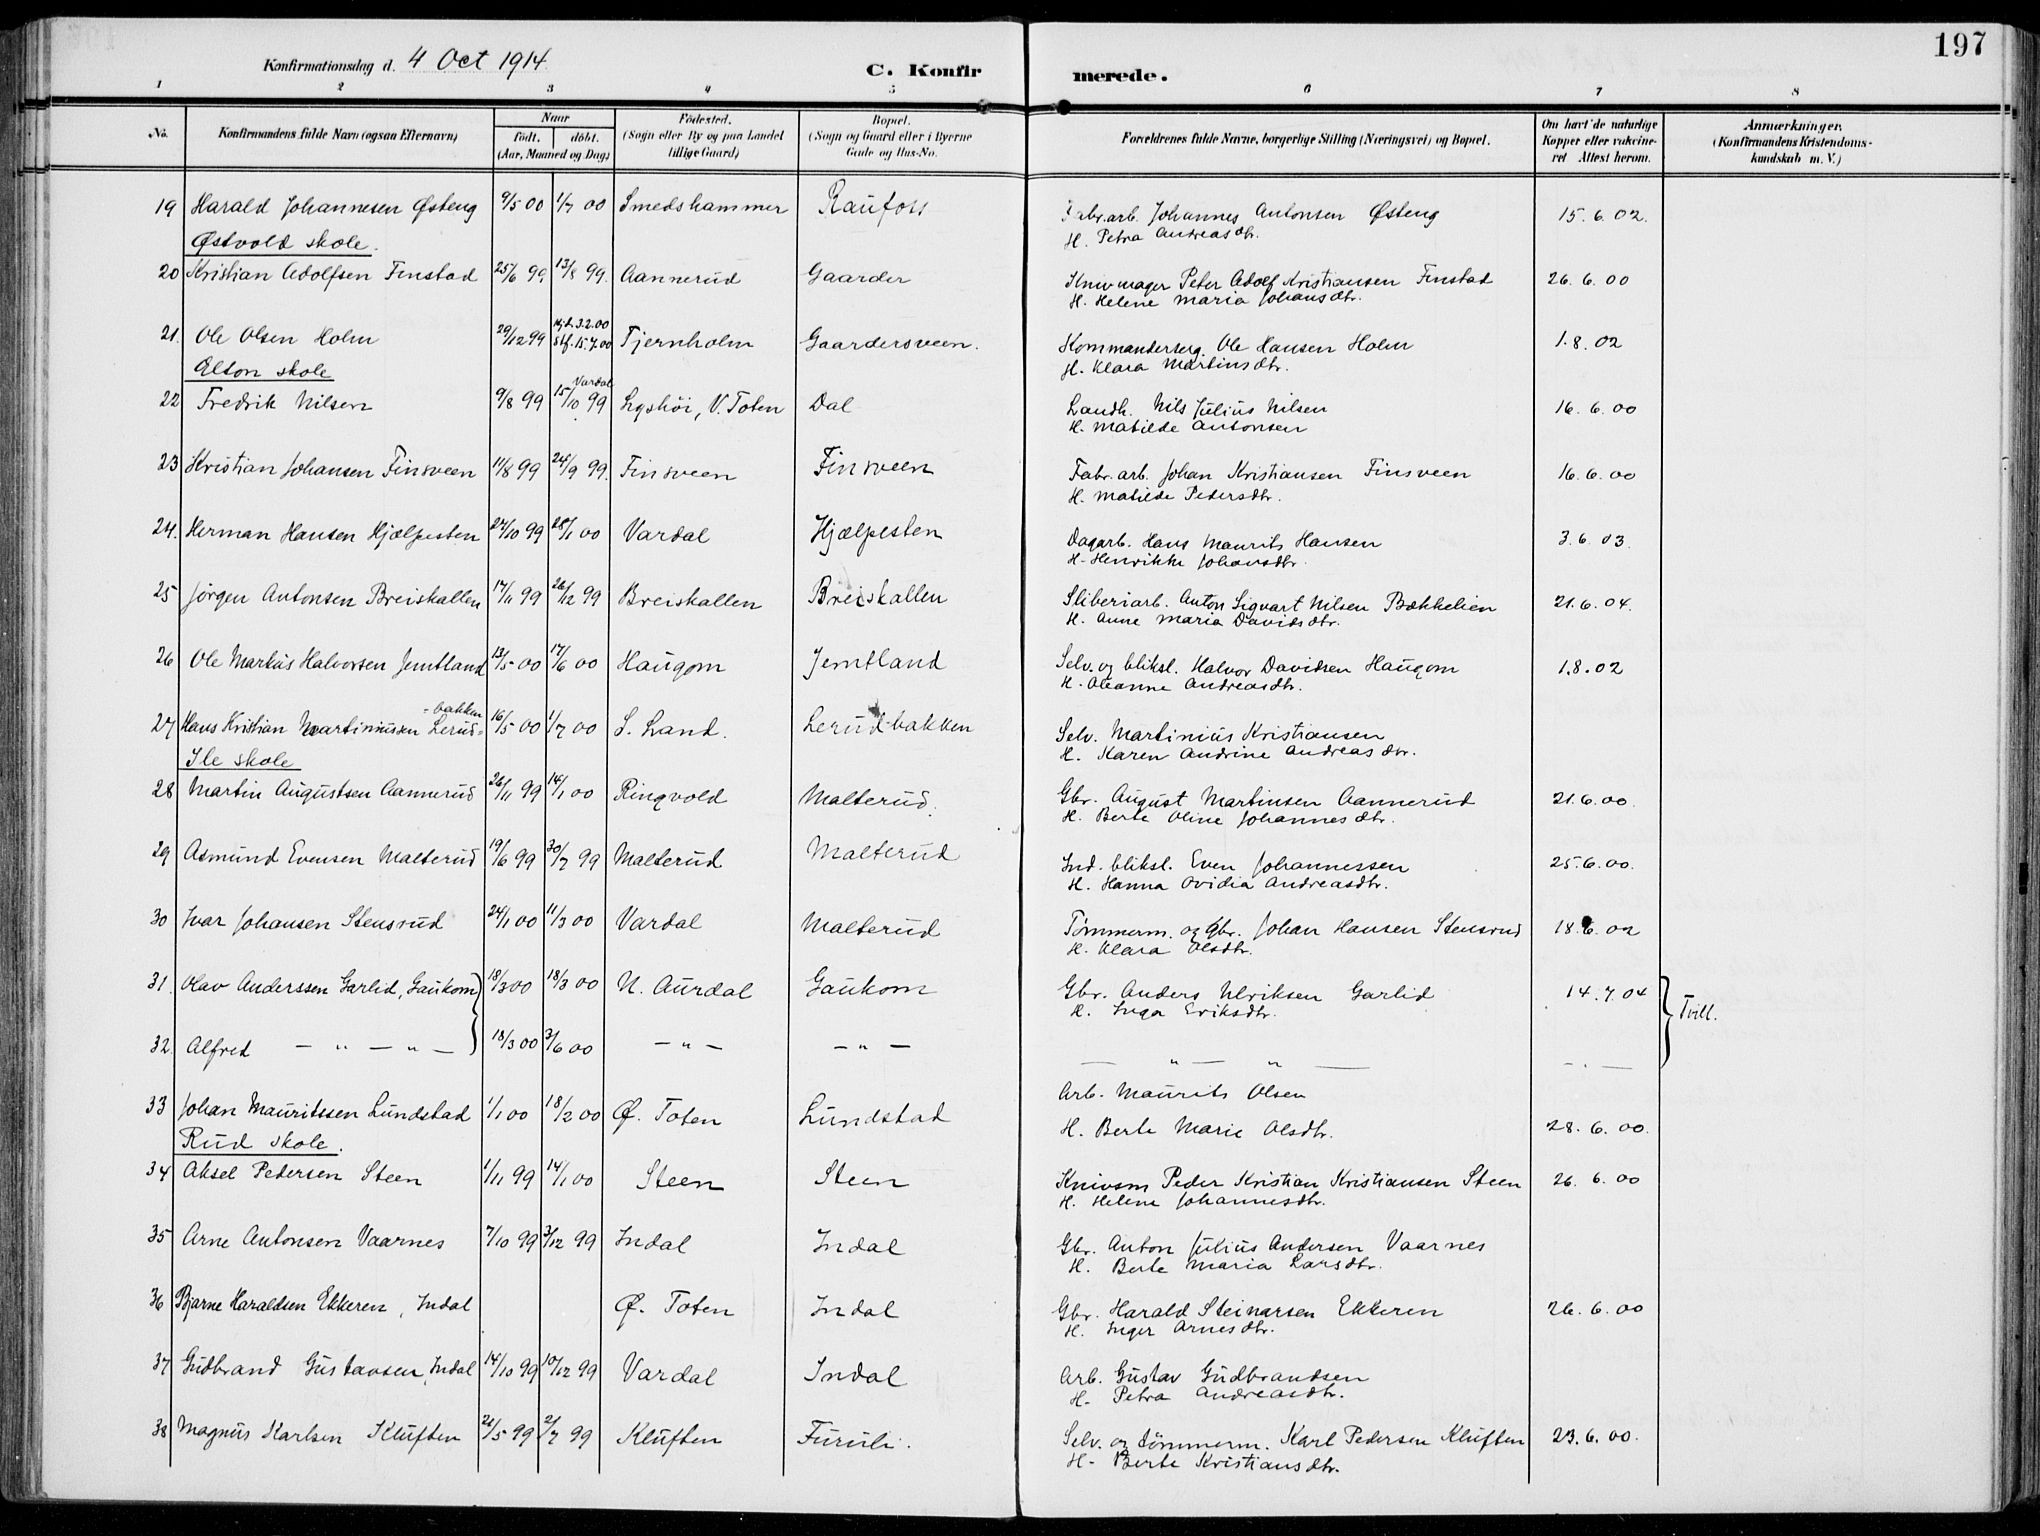 197
Konfirmationsdag d. 4 Oct 1914
C. Konfirmerede.
1 2 3 4 5 6 7 8
No. Konfirmandens fulde Navn (ogsaa Efternavn) Naar Födested. Bopæl. Forældrenes fulde Navne, borgerlige Stilling (Næringsvei) og Bopæl. Om havt de naturlige Anmærkninger.
födt. döbt. (Sogn eller By og paa Landet (Sogn og Gaard eller i Byerne Kopper eller vakcine- (Konfirmandens Kristendoms-
(Aar, Maaned og Dag) tillige Gaard) Gade og Hus-No. ret Attest herom. kundskab m. V.)
19 Harald Johannesen Østeng 9/5 00 1/7 00 Smedshammer Raufoss Fabr.arb. Johannes Antonsen Østeng 15.6.02.
H. Petra Andreasdtr.
Østvold skole.
20 Kristian Adolfsen Finstad 25/6 99. 13/8 99. Aannerud Gaarder Knivmager Peter Adolf Kristiansen Finstad 26.6.00
H. Helene Maria Johansdtr.
21. Ole Olsen Holm 29/12 99 Hjd. 3.2.00 Tjernholm Gaardersveen. Kommandersrg. Ole Hansen Holm 1.8.02
Stf. 15.7.00
H. Klara Martinsdtr.
Elton skole
22 Fredrik Nilsen 9/8 99 15/10 99 Vardal Lyshöi, V. Toten Dal Landh. Nils Julius Nilsen 16.6.00
H. Matilde Antonsen
23 Kristian Johansen Finsveen 11/8 99 24/9 99. Finsveen Finsveen Fabr.arb. Johan Kristiansen Finsveen 16.6.00
H. Matilde Pedersdtr.
24. Herman Hansen Hjælpesten 27/10 99 28/1 00 Vardal Hjælpesten Dagarb. Hans Maurits Hansen 3.6.03.
H. Henrikke Johansdtr.
25 Jörgen Antonsen Breiskallen 17/11 99 26/12 99 Breiskallen Breiskallen Sliberiarb. Anton Sigvart Nilsen Bækkelien 21.6.04.
H. Anne Maria Davidsdtr.
26 Ole Markus Halvorsen Jemtland 13/5 00 17/6 00 Haugom Jemtland Selv. og bliksl. Halvor Davidsen Haugom 1.8.02
H. Oleanne Andreasdtr.
27 Hans Kristian Martiniusen Lerud=bakken 16/5 00 1/7 00 S. Land. Lerudbakken Selv. Martinius Kristiansen
H. Karen Andrine Andreasdtr.
Ile skole
28 Martin Augustsen Aannerud 26/11 99 14/1 00 Ringvold Malterud. Gbr. August Martinsen Aannerud 21.6.00.
H. Berte Oline Johannesdtr.
29 Asmund Evensen Malterud 19/6 99 30/7 99 Malterud Malterud Ind. bliksl. Even Johannessen 25.6.00.
H. Hanna Ovidia Andreasdtr.
30 Ivar Johansen Stensrud 24/1 00 11/3 00 Vardal Malterud Tømmerm. og Gbr. Johan Hansen Stensrud 18.6.02
H. Klara Olsdtr.
31. Olav Anderssen Garlid, Gaukom 18/3 00 18/3 00 N. Aurdal Gaukom Gbr. Anders Ulriksen Garlid 14.7.04 Tvill.
H. Inga Eriksdtr.
32. Alfred — " — " — 18/3 00 3/6 00 — " — — " — — " — " — — . —
33 Johan Mauritssen Lundstad 1/1 00 18/2 00 Ø. Toten Lundstad Arb. Maurits Olsen
H. Berte Marie Olsdtr. 28.6.00.
Rud skole.
34 Aksel Pedersen Steen 1/11 99 14/1 00 Steen Steen Knivsm Peder Kristian Kristiansen Steen 26.6.00
H. Helene Johannesdtr.
35 Arne Antonsen Vaarnes 7/10 99 3/12 99 Indal Indal Gbr. Anton Julius Andersen Vaarnes
H. Berte Maria Larsdtr.
36 Bjarne Haraldsen Ekkeren, Indal Ø. Toten Indal Gbr. Harald Steinarsen Ekkeren 26.6.00
H. Inger Arnesdtr.
37 Gudbrand Gustavsen, Indal 14/10 99 10/12 99 Vardal Indal Arb. Gustav Gudbrandsen
H. Petra Andreasdtr.
38 Magnus Karlsen Kluften 21/5 99 2/7 99 Kluften Furuli. Selv. og tömmerm. Karl Pedersen Kluften 23.6.00.
H. Berte Kristiansdtr.